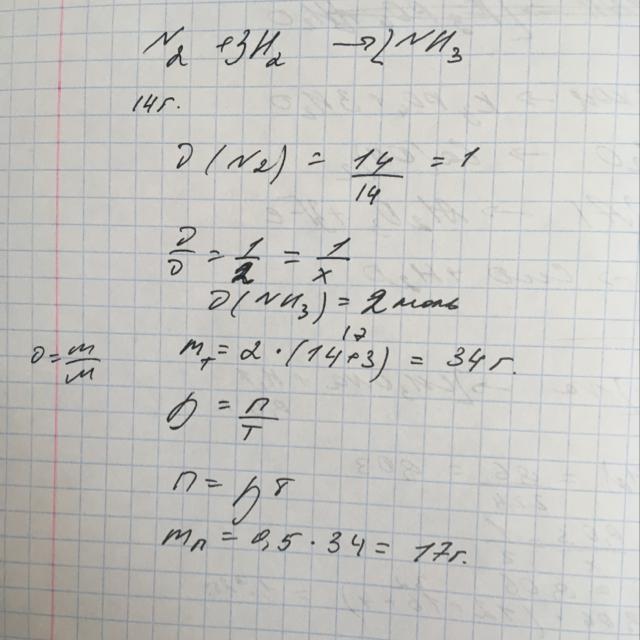 N₂ + 3H₂ → 2NH₃
14 г.
υ(N2) = 14/14 = 1
υ/υ = 1/2 = 1/x
υ(NH₃) = 2 моль
17
υ = m/M mт = 2 · (14+3) = 34 г.
η = п/т
п = η т
mп = 0,5 · 34 = 17 г.